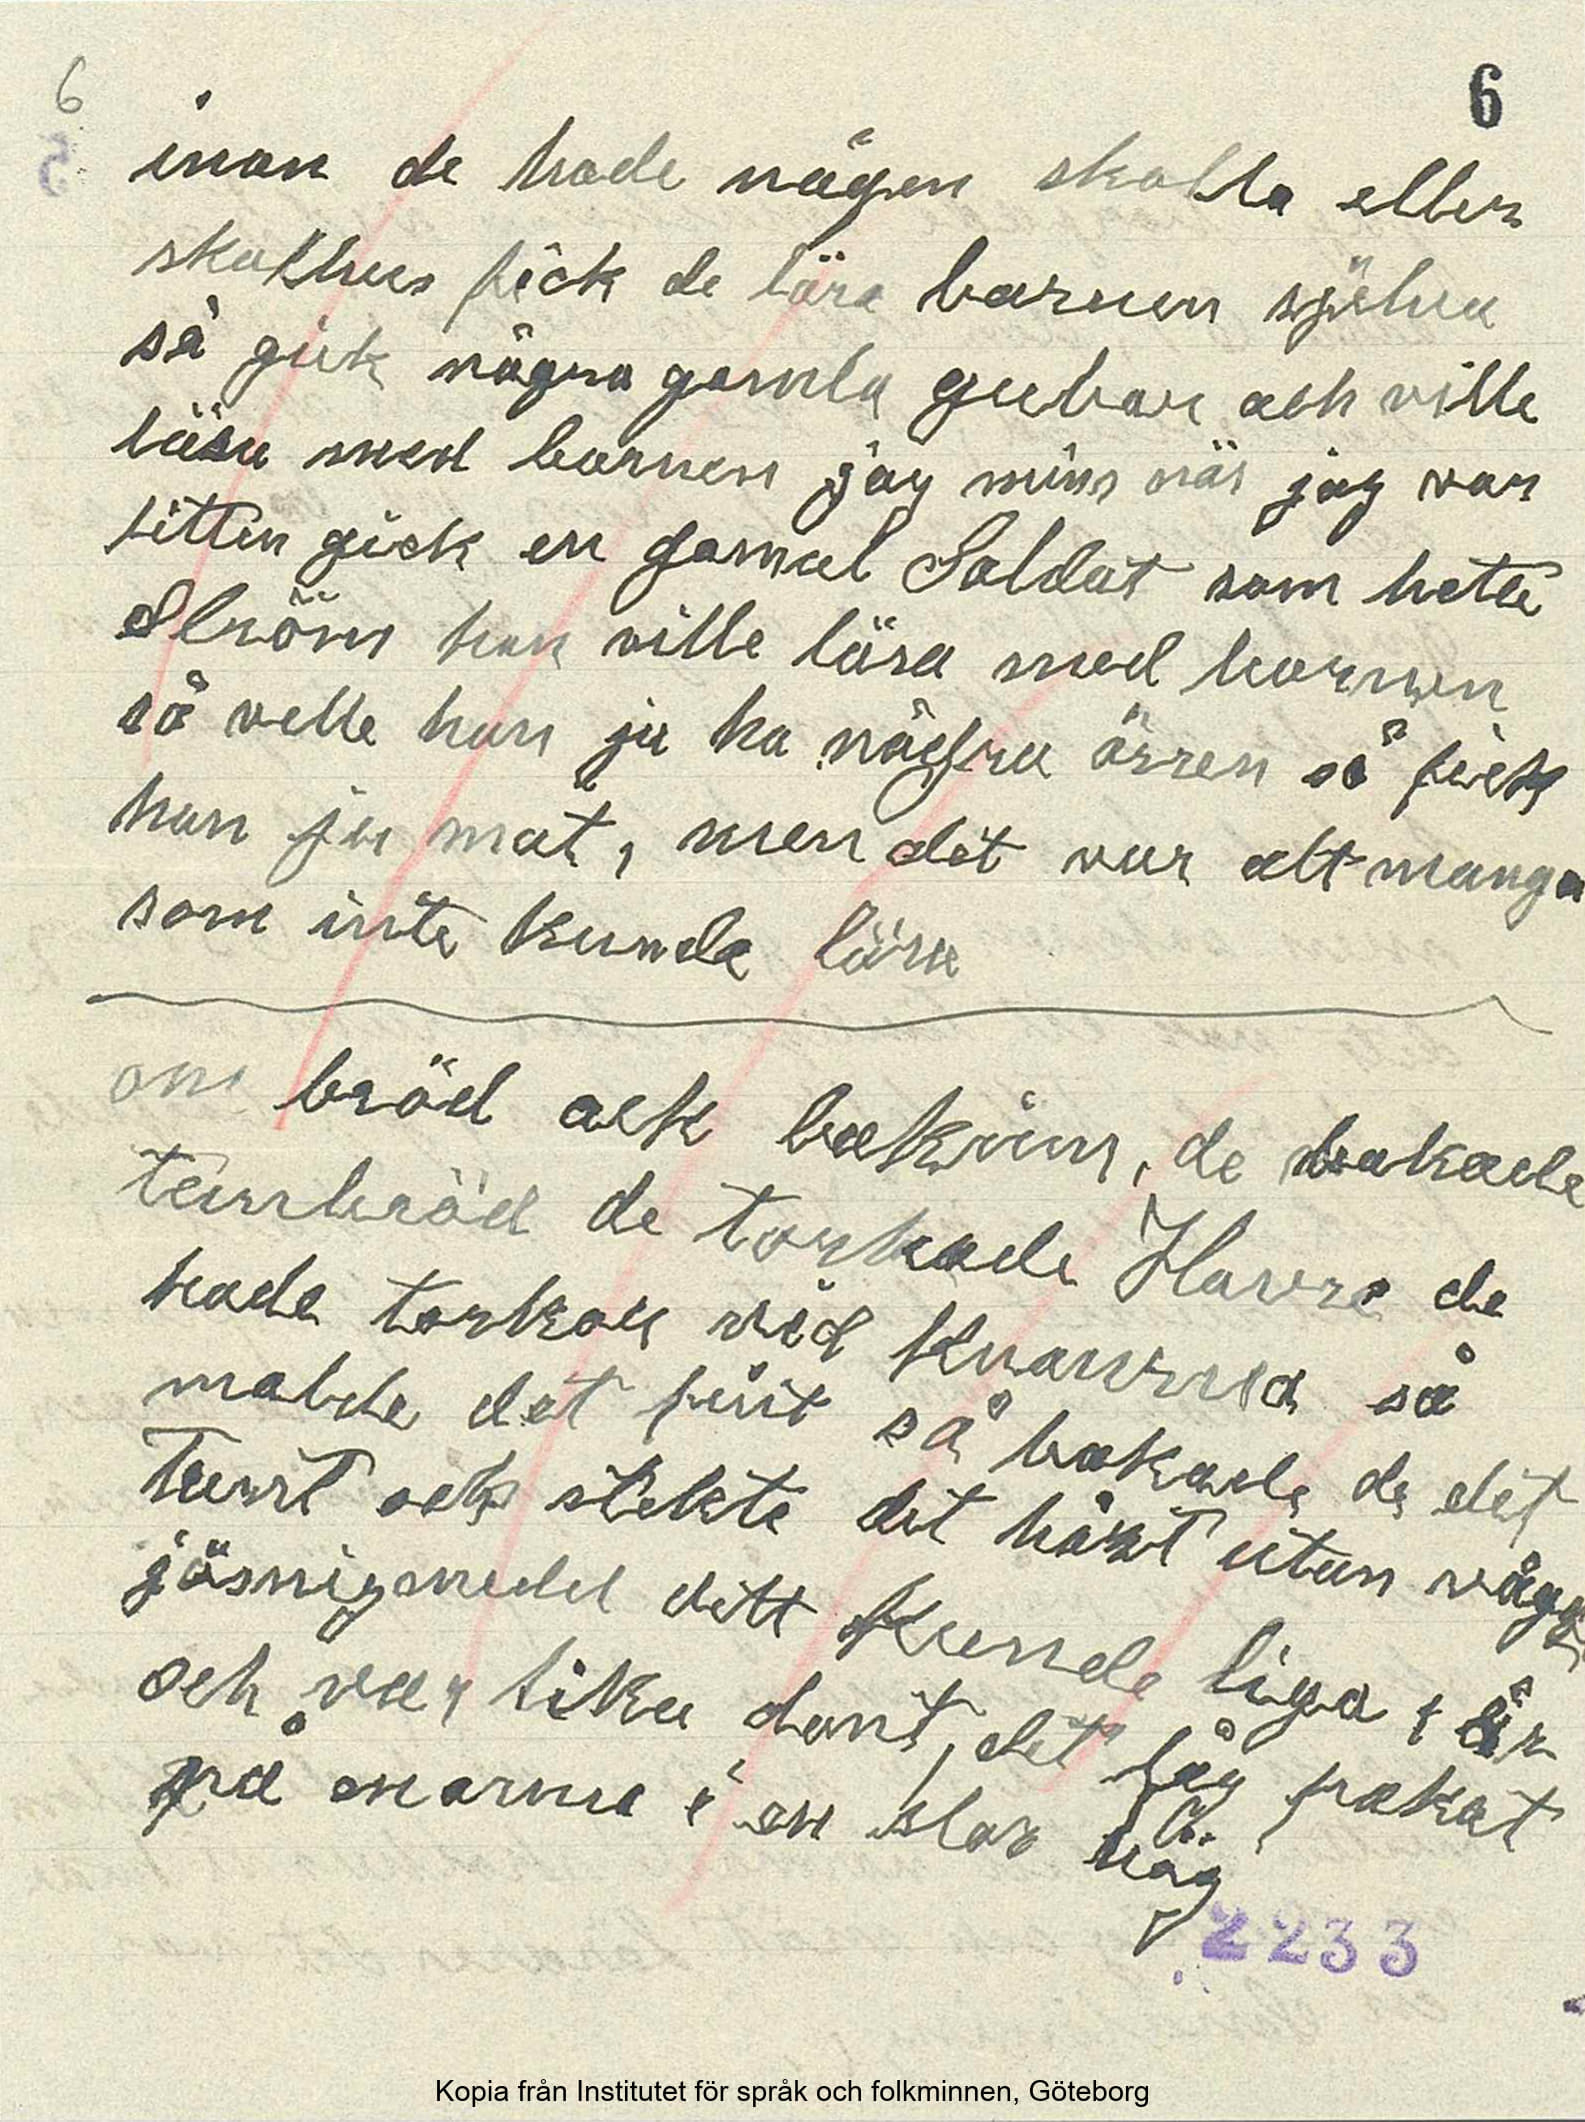 6
6
5
inan de hade någon skolla eller
skolhus fick de lära barnen själva
så gick några gamla gubar ock ville
läsa med barnen jag mins när jag var
litten gick en gamal Soldat som hette
Ström han ville läsa med barnen
så velle han ju ha någhra ören så fick
han ju mat, men det var alt manga
som inte kunde läsa
om bröd ock bakning, de bakade
tunbröd de torkade Havre de
hade torkan vid kvarnna så
malde det fint så bakade de det
Tunt och stekte det hårt utan någon
jäsnigmedel ditt kunde liga i år
och var lika dant, det låg pakat
på marna i en stor hög
2233
Kopia från Institutet för språk och folkminnen, Göteborg